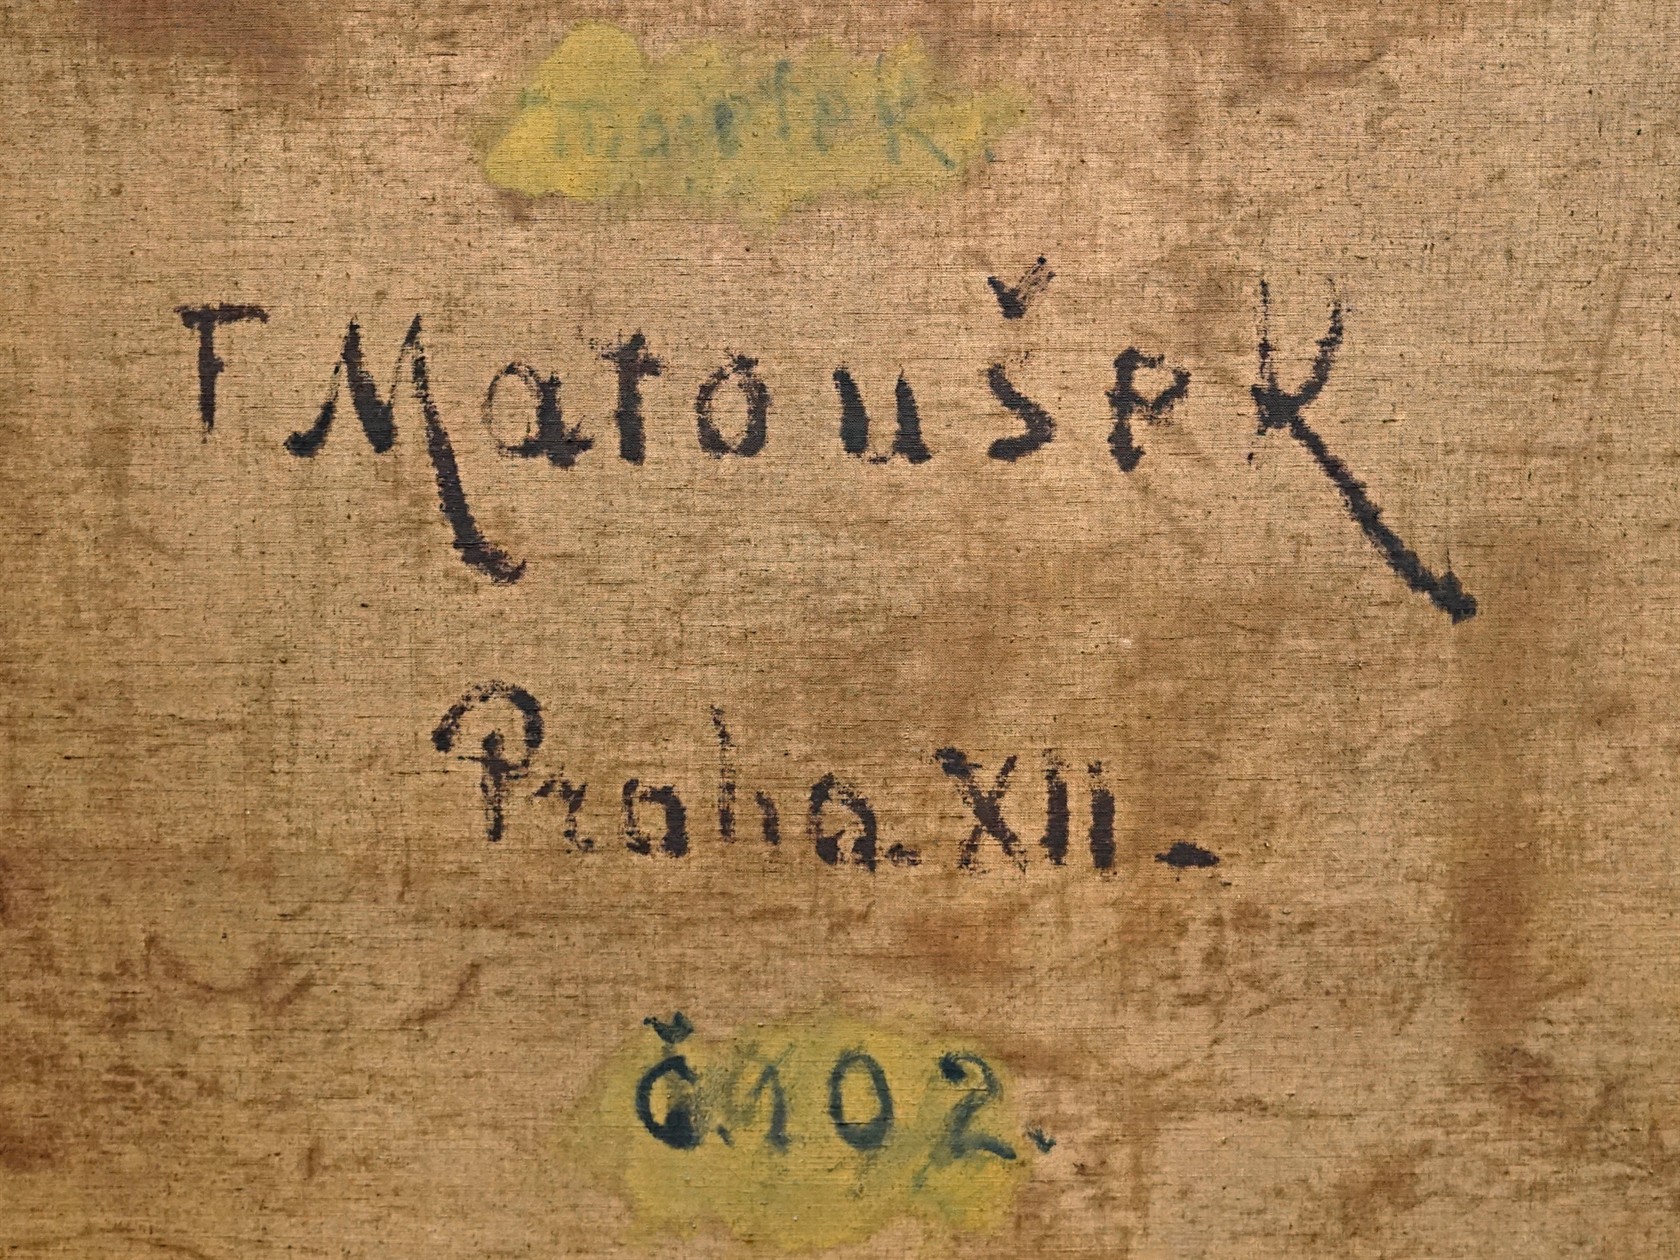 F Matoušek
Praha. XII -
Č. 102.